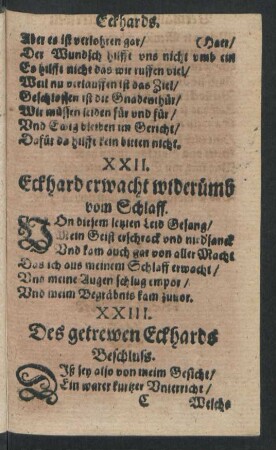 Eckhards.
Aber es ist verlohren gar/ (Haer/
Der Wundsch hilfft vns nicht vmb ein
Es hilfft nicht das wir ruffen viel/
Weil nu verlauffen ist das Ziel/
Geschlossen ist die Gnadenthür/
Wir müssen leiden für und für/
Vnd Ewig bleiben im Gericht/
Dafür da hilfft kein bitten nicht.
XXII.
Eckhard erwacht widerümb
vom Schlaff.
VOn diesem letzten Leid Gesang/
Mein Geist erschrack und niedsanck
Vnd kam auch gar von aller Macht
Das ich aus meinem Schlaff erwacht/
Vns meine Augen schlug empor/
Vnd meim Begräbnis kam zuuor.
XXIII.
Des getrewen Eckhards
Beschluß.
DIß sey also von meim Gesicht/
Ein warer kurtzer Vnterricht/
C Welchs